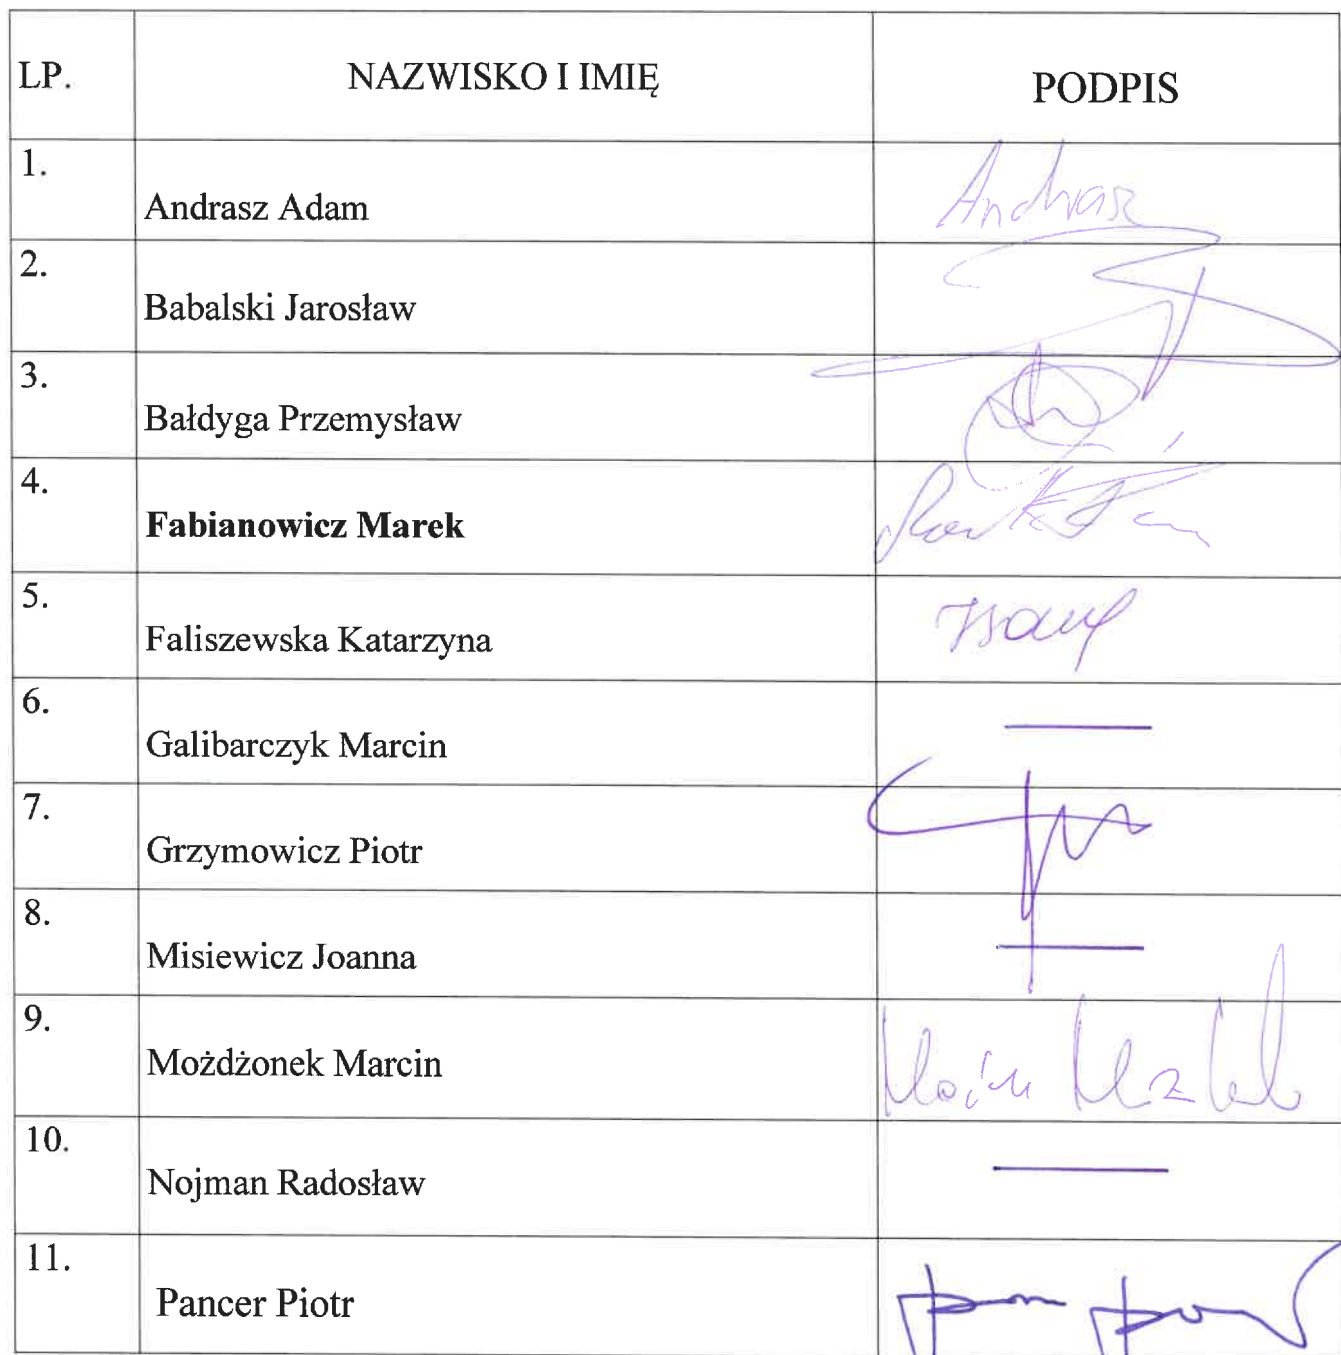 LP. NAZWISKO I IMIĘ PODPIS
1. Andrasz Adam Andrasz
2. Babalski Jarosław
3. Bałdyga Przemysław
4. Fabianowicz Marek
5. Faliszewska Katarzyna
6. Galibarczyk Marcin —
7. Grzymowicz Piotr
8. Misiewicz Joanna —
9. Możdżonek Marcin
10. Nojman Radosław —
11. Pancer Piotr